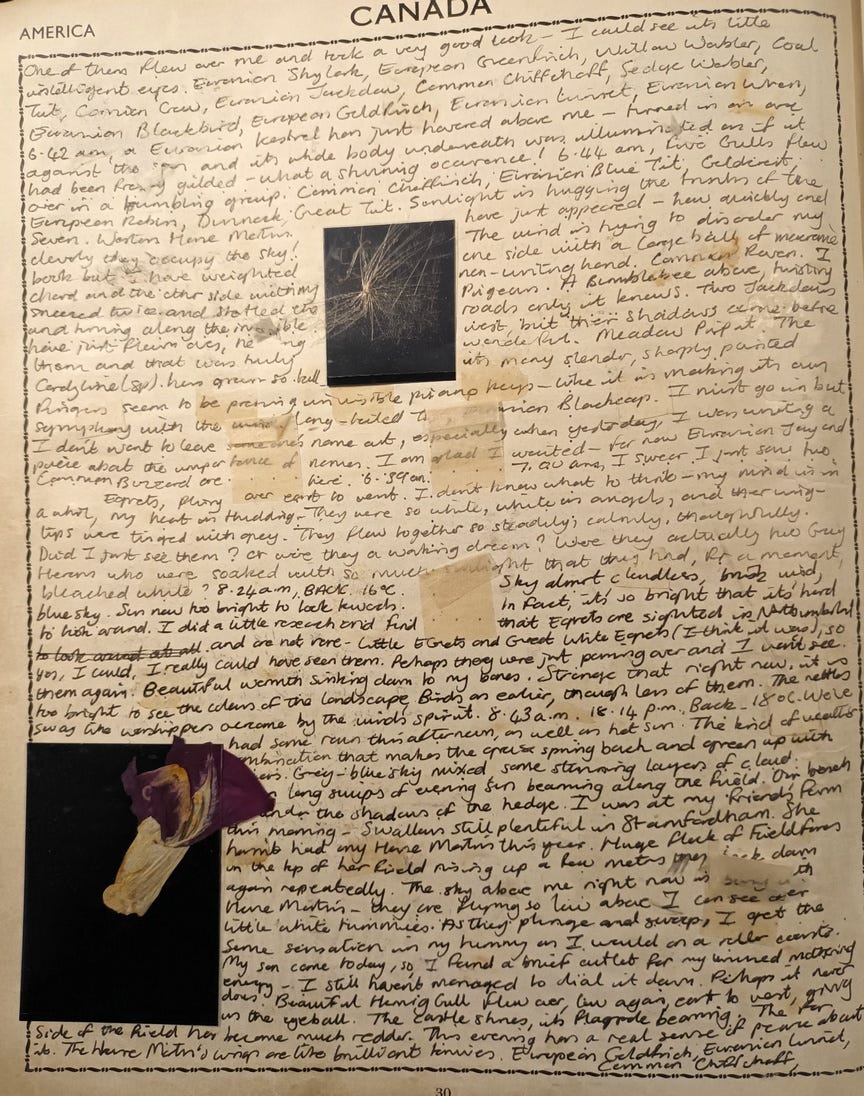 AMERICA
CANADA
One of them flew over me and took a very good look - I could see its little
intelligent eyes. Eurasian Skylark, European Greenfinch, Willow Warbler, Coal
Tit, Carrion Crow, Eurasian Jackdaw, Common Chiffchaff, Sedge Warbler,
Eurasian Blackbird, European Goldfinch, Eurasian Linnet, Eurasian Wren,
6.42 am, a Eurasian Kestrel has just hovered above me - turned in an arc
against the sun and its whole body underneath was illuminated as if it
had been gilded - what a stunning occurence! 6.44 am, Five Gulls flew
over in a group. Common Chaffinch, Eurasian Blue Tit, Goldcrest,
European Robin, Dunnock, Great Tit. Sunlight is hugging the trunks of the
Seven. Western House Martins
have just appeared - how quickly and
cleverly they occupy the sky!
The wind is trying to disorder my
book but I have weighted
one side with a large ball of macramé
chord and the other side with my
non-writing hand. Common Raven. I
sneezed twice and startled the
Pigeons. A Bumblebee above, twisting
and turning along the invisible
roads only it knows. Two Jackdaws
have just flown over,
west, but their shadows came before
them and that was truly
wonderful. Meadow Pipit. The
(sp). has grown so tall
its many slender, sharply pointed
fingers seem to be pressing invisible piano keys - like it is making its own
symphony with the wind. Long-tailed Eurasian Blackcap. I must go in but
I don't want to leave someone's name out, especially when yesterday, I was writing a
piece about the importance of names. I am glad I waited - for now Eurasian Jay and
Common Buzzard are here. 6.39am. 7.00 am, I swear I just saw two
Egrets, flying over east to west. I don't know what to think - my mind is in
a whirl, my heart is thudding - They were so white, white as angels, and their wing-
tips were tinged with grey. They flew together so steadily, calmly, thoughtfully.
Did I just see them? Or were they a waking dream? Were they actually two Grey
Herons who were soaked with so much light that they had, for a moment,
bleached white? 8.24am, BACK. 16°C.
Sky almost cloudless, wind,
blue sky. Sun now too bright to look towards.
In fact, it's so bright that it's hard
to look around. I did a little research and find
that Egrets are sighted in Northumberland
to look around at all. and are not rare - Little Egrets and Great White Egrets (I think it was), so
yes, I could, I really could have seen them. Perhaps they were just passing over and I won't see
them again. Beautiful warmth sinking down to my bones. Strange that right now, it is
too bright to see the colours of the landscape. Birds as earlier, though less of them. The nettles
sway like worshippers overcome by the wind's spirit. 8.43a.m. 18.14 p.m. Back - 18°C. We've
had some rain this afternoon, as well as hot sun. The kind of weather
combination that makes the grass spring back and green up with
Grey-blue sky mixed some stunning layers of cloud.
long swips of evening sun beaming along the field. Our bench
under the shadow of the hedge. I was at my friend's farm
this morning - Swallows still plentiful in Stamfordham. She
hasn't had any House Martins this year. Huge flock of Fieldfares
in the top of her field rising up a few metres then back down
again repeatedly. The sky above me right now is with
House Martins - they are flying so low above I can see their
little white tummies. As they plunge and swoop, I get the
same sensation in my tummy as I would on a roller coaster.
My son came today, so I found a brief outlet for my unused mothering
energy - I still haven't managed to dial it down. Perhaps it never
does. Beautiful Herring Gull flew over, low again, east to west, giving
us the eyeball. The castle shines, its flagpole beaming. The far
side of the field has become much redder. This evening has a real sense of peace about
it. The House Martin's wings are like brilliant knives. European Goldfinch, Eurasian Linnet,
Common Chiffchaff,
30